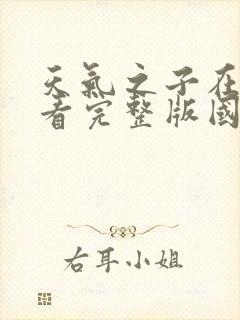 天氣之子在
看完整版國
右耳小姐